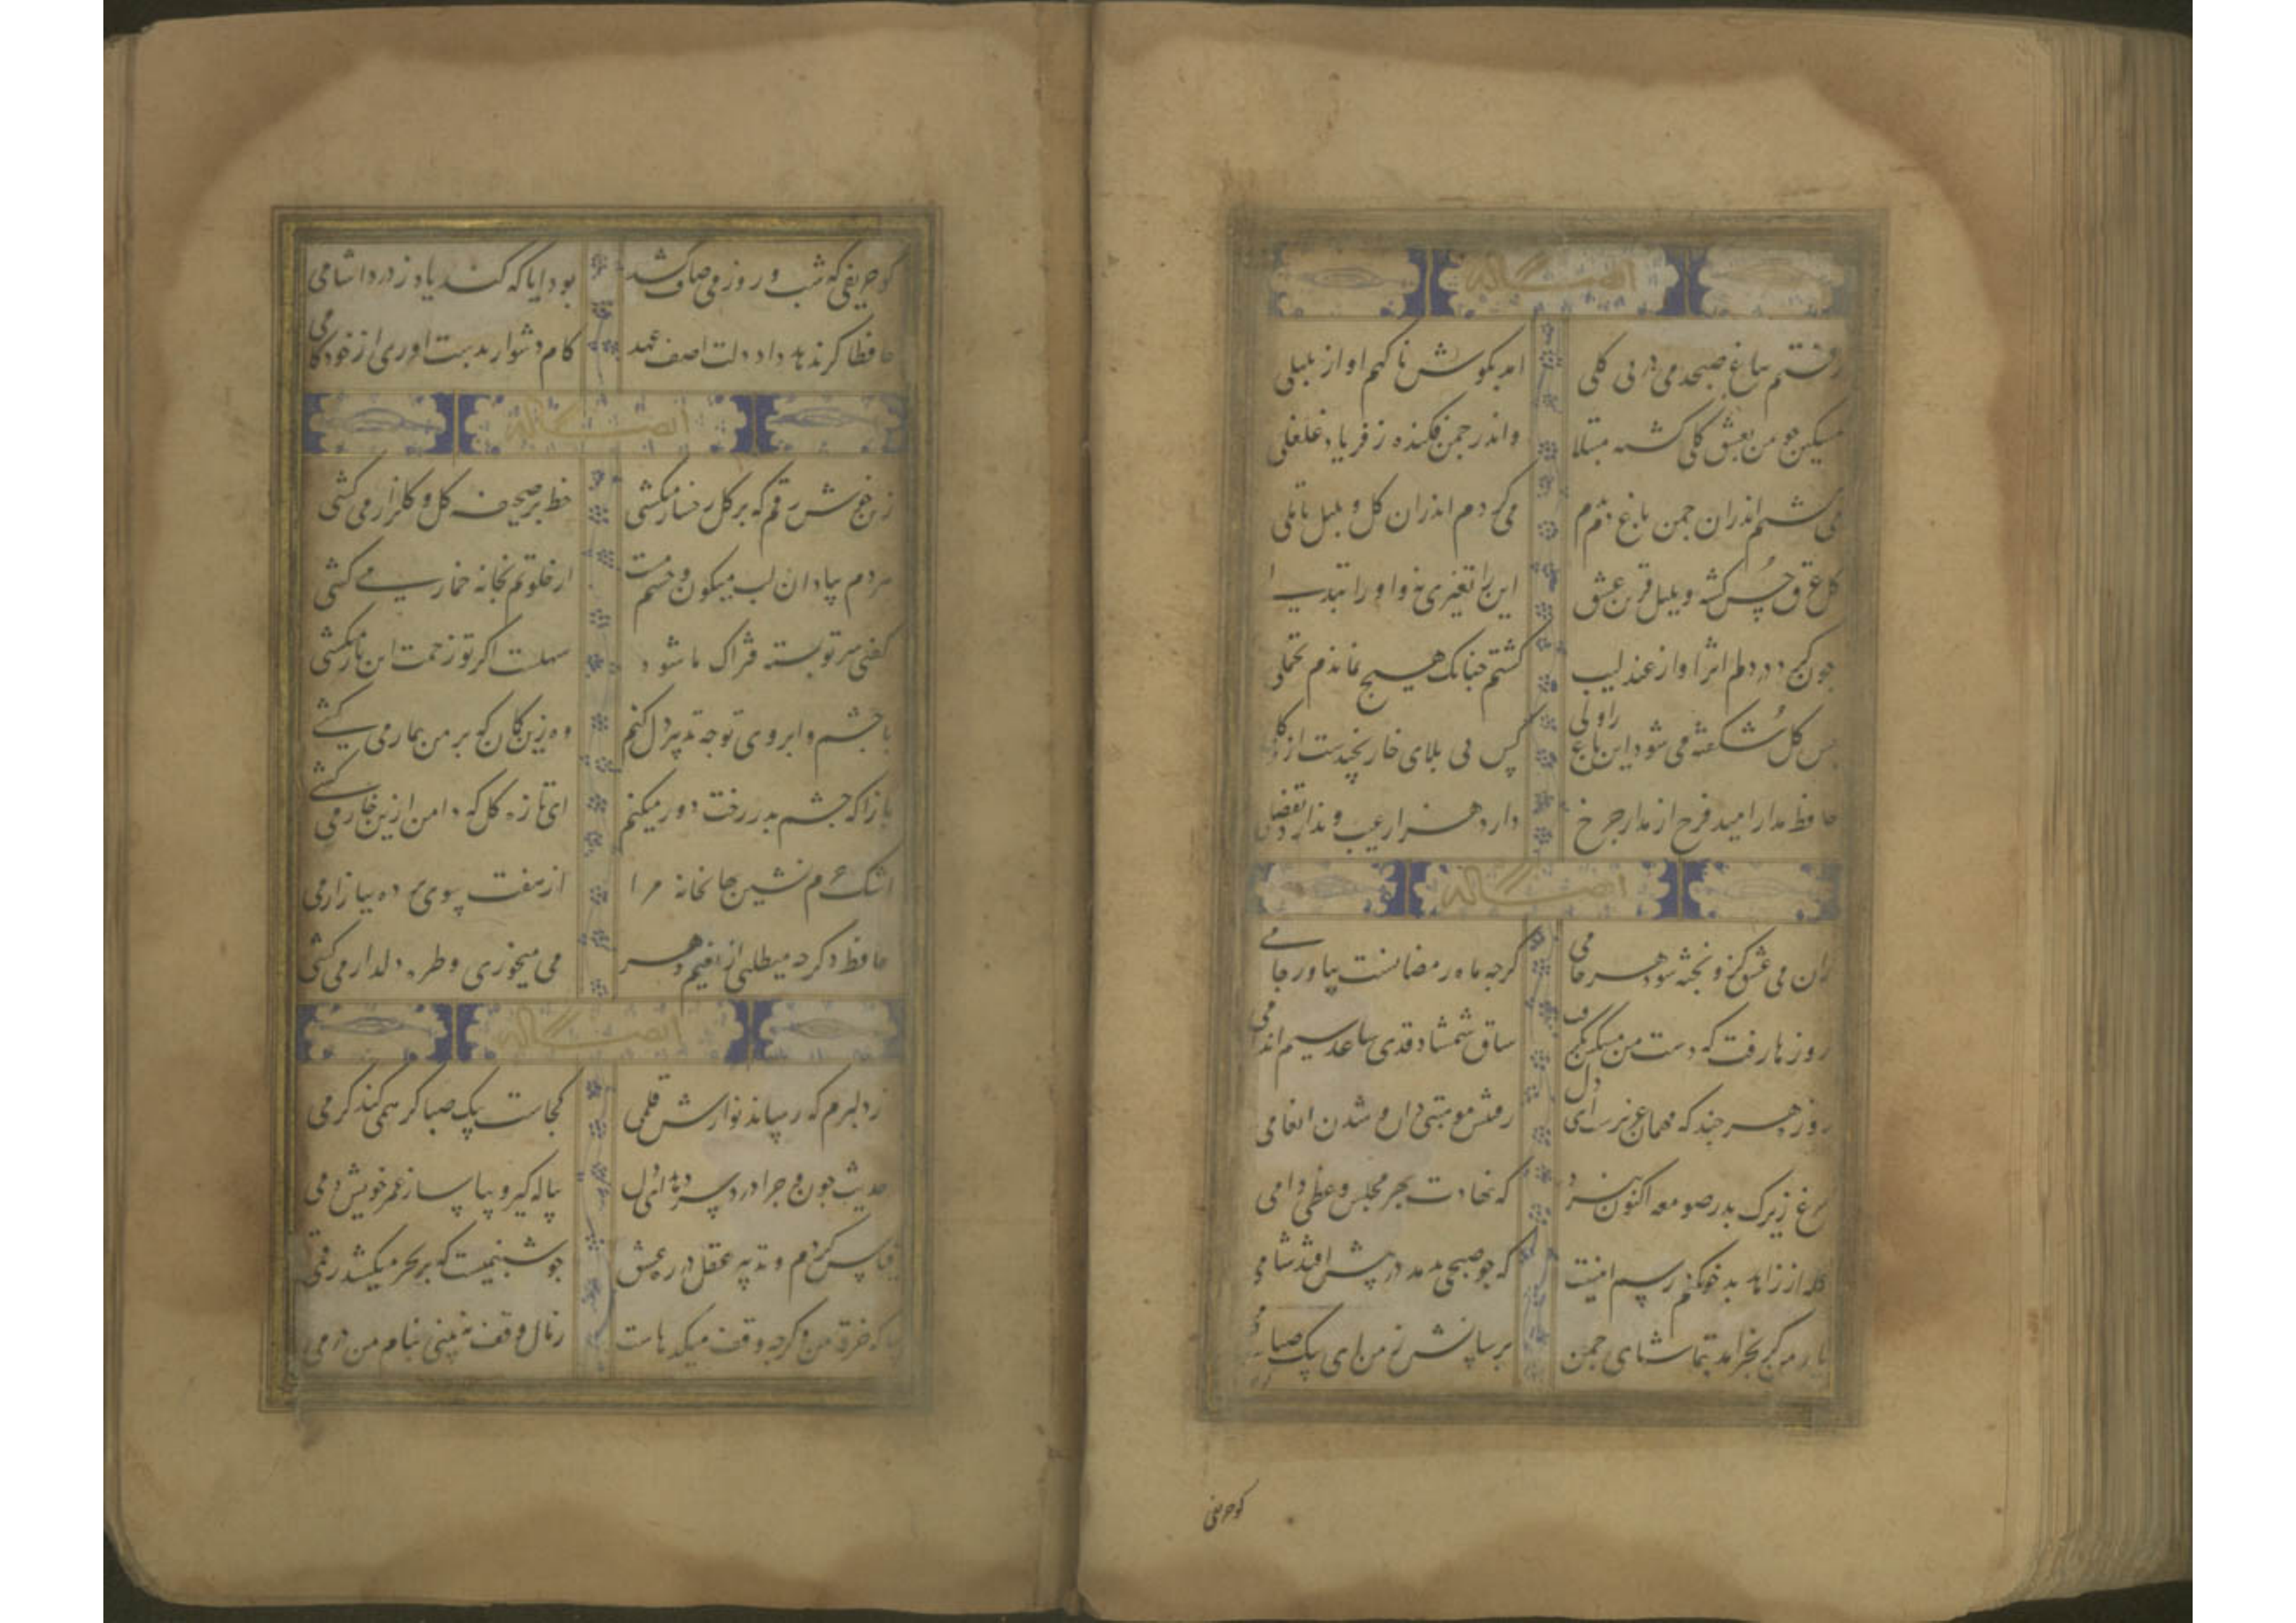 ایضاً له
رفتم بباغ صبحدمی در پی کلی امد بکوش ناکهم اواز بلبلی
مسکین جو من بعشق کلی کشته مبتلا واندر جمن فکنده ز فریاد غلغلی
می کشتم اندران جمن باغ دم بدم می کردم اندران کل و بلبل تاملی
کل حسن کشته و بلبل قرین عشق این را تغیری نه و او را تبدلی
جون کرد در دلم اثر اواز عندلیب کشتم جنانک هیچ نماندم تحملی
بس کل شکفته می شود این باغ را ولی کس بی بلای خار نچیدست از و کلی
حافظ مدار امید فرح از مدار جرخ دارد هزار عیب و ندارد تفضلی
ایضاً له
زان می عشق کزو پخته شود هر خامی کرجه ماه رمضانست بیاور جامی
روزها رفت که دست من مسکین نکرفت ساق شمشاد قدی ساعد سیم اندامی
روزه هر جند که مهمان عزیزست ای دل رفتنش موهبتی دان و شدن انعامی
مرغ زیرک بدر صومعه اکنون نپرد که نهادست بهر مجلس وعظی دامی
کله از زاهد بدخو نکنم رسم اینست که جو صبحی بدمد در پیش افتد شامی
یار من کر بخرامد بتماشای جمن برسانش ز من ای پیک صبا
کو حریفی
کو حریفی که شب و روز می صاف کشد بود ایا که کند یاد ز درداشامی
حافظا کر ندهد داد دلت اصف عهد کام دشوار بدست اوری از خودکامی
ایضاً له
زین خوش رقم که بر کل رخسار میکشی خط بر صحیفه کل و کلزار می کشی
مردم بیاد ان لب میکون و چشم مست از خلوتم بخانه خمار می کشی
کفتی سر تو بسته فتراک ما شود سهلست اکر تو زحمت این بار میکشی
با چشم و ابروی تو جه تدبیر دل کنم وه زین کمان که بر من بیمار می کشی
بازا که چشم بد ز رخت دور میکنم ای تازه کل که دامن ازین خار می کشی
اشک نشین خانه مرا از هفت ده ببازار می
حافظ دکر جه میطلبی از نعیم دهر می میخوری و طره دلدار می کشی
ایضاً له
ز دلبرم که رساند نوازش قلمی کجاست پیک صبا کر همی کند کرمی
حدیث جون و جرا درد سر دهد ای دل پیاله کیر و بیاسا ز عمر خویش دمی
قیاس کردم و تدبیر عقل در ره عشق جو شبنمیست که بر بحر میکشد رقمی
بیا که خرقه من کرجه وقف میکدهاست ز مال وقف نبینی بنام من درمی